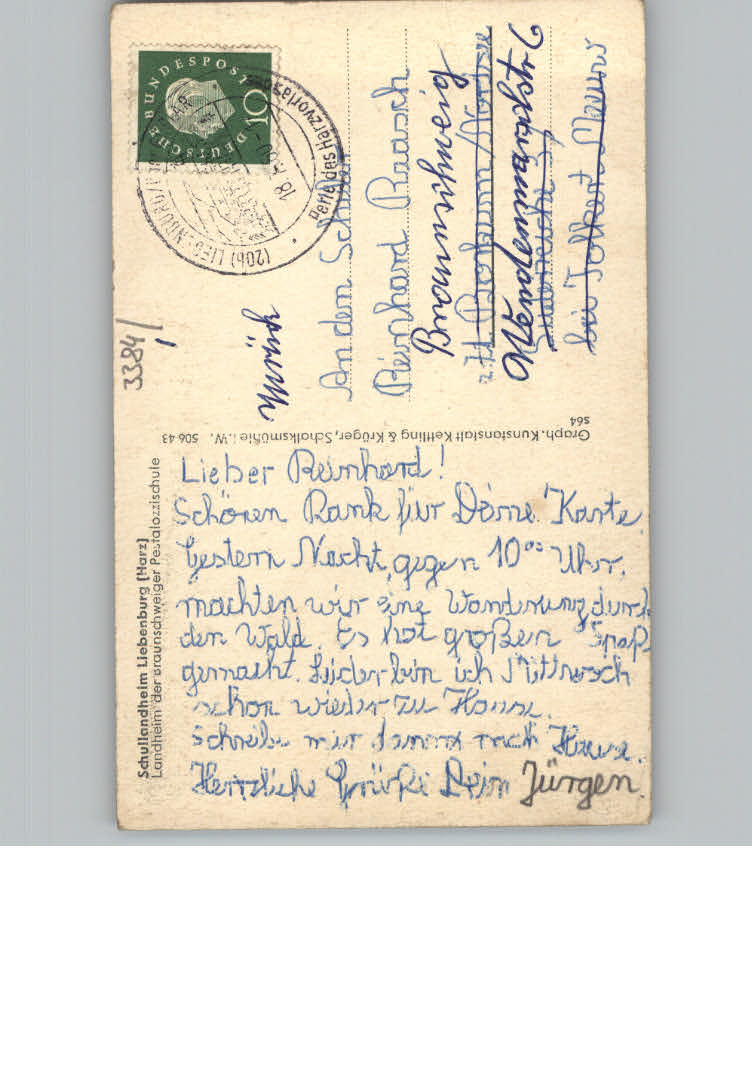 Schullandheim Liebenburg (Harz)
Landheim der Braunschweiger Pestalozzischule
Lieber Reinhard!
Schönen Dank für Deine Karte.
Gestern Nacht, gegen 10⁰⁰ Uhr,
machten wir eine Wanderung durch
den Wald. Es hat großen Spaß
gemacht. Leider bin ich Mittwoch
schon wieder zu Hause.
Schreibe mir dann nach Hause.
Herzliche Grüße Dein Jürgen.
Graph. Kunstanstalt Kettling & Krüger, Schalksmühle i. W. 506 43
S64
3384/
DEUTSCHE BUNDESPOST
10
(20b) LIEBENBURG
18
Perle des Harzvorlandes
Zurück
An den Schüler
Reinhard Raasch
Braunschweig
bei